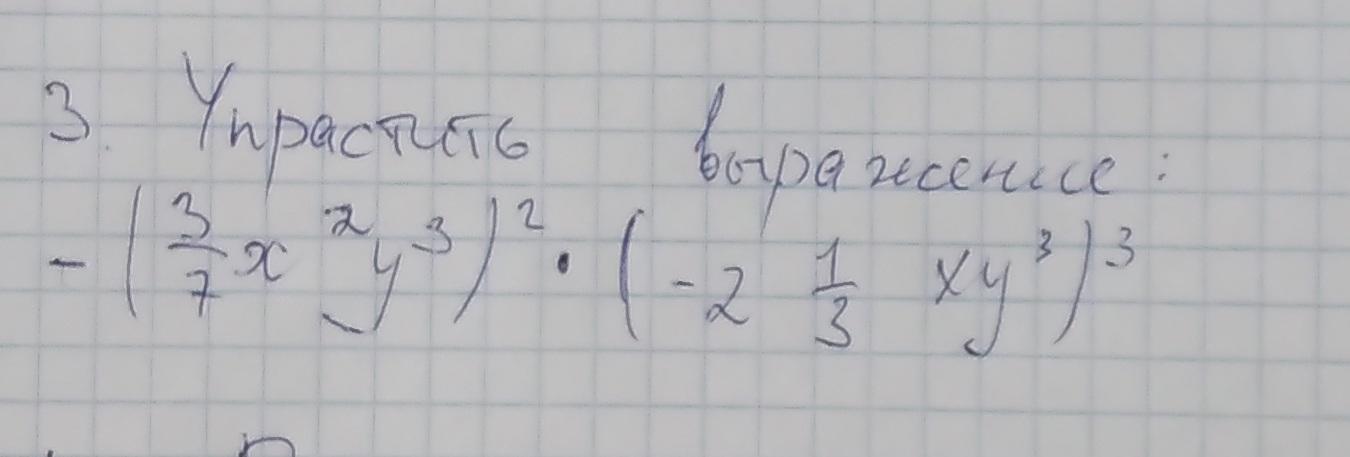 3. Упрастить выражение:
-(3/7 x²y³)² · (-2 1/3 xy³)³